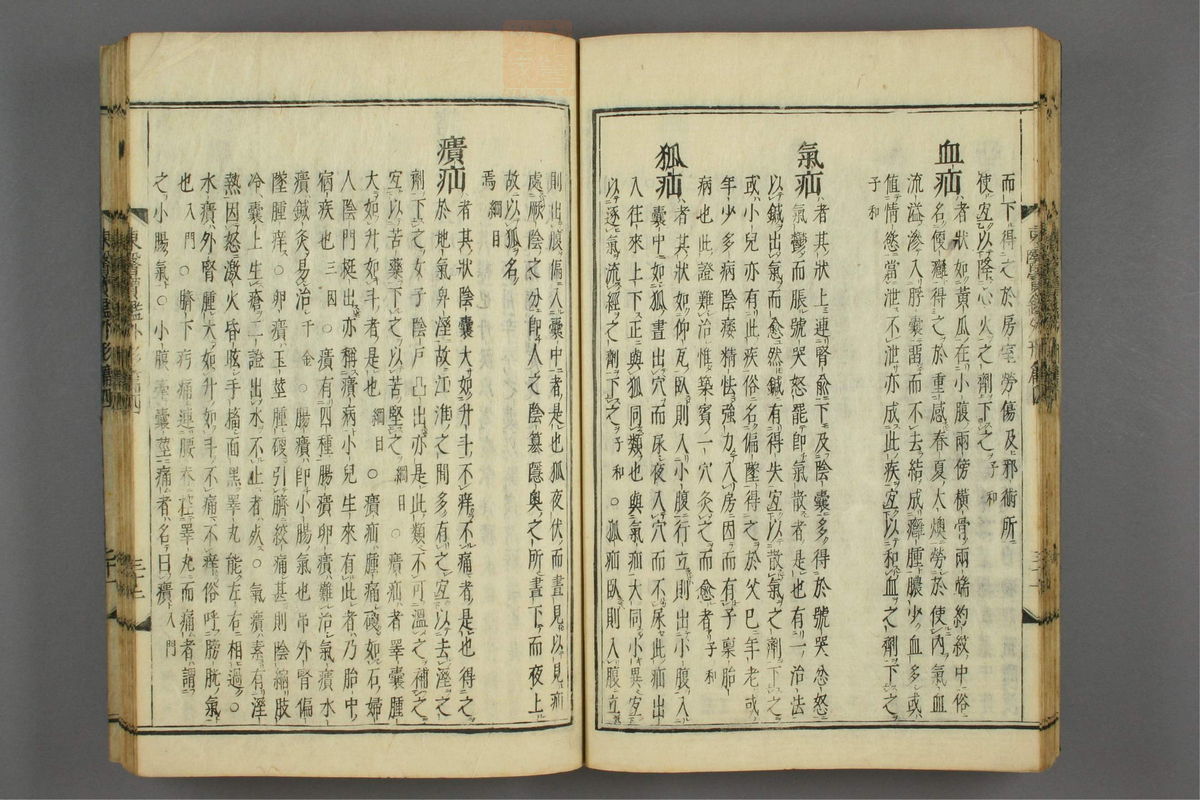 而下得之於房室勞傷及邪術所
使宜以降心火之劑下之子和
血疝
者狀如黃瓜在小腹兩傍橫骨兩端約紋中俗
名便癰得之於重感春夏大燠勞於使內氣血
流溢滲入脬囊留而不去結成癰腫膿少血多或
値情慾當泄不泄亦成此疾宜以和血之劑下之
子和
氣疝
者其狀上連腎兪下及陰囊多得於號哭忿怒
氣鬱而脹號哭怒罷卽氣散者是也有一治法
以鍼出氣而愈然鍼有得失宜以散氣之劑下之
或小兒亦有此疾俗名偏墜得之於父已年老或
年少多病陰痿精怯強力入房因而有子稟胎
病也此證難治惟築賓一穴灸之而愈者子和
狐疝
者其狀如仰瓦臥則入小腹行立則出小腹入
囊中如狐晝出穴而尿夜入穴而不尿此疝出
入往來上下正與狐同類也與氣疝大同小異宜
以逐氣流經之劑下之子和○狐疝臥則入腹立
則出腹偏入囊中者是也狐夜伏而晝見以見疝
處厥陰之分卽人之陰篡隱奧之所晝下而夜上
故以狐名
焉綱目
㿉疝
者其狀陰囊大如升斗不痒不痛者是也得之
於地氣卑溼故江淮之間多有之宜以去溼之
劑下之女子陰戶凸出亦是此類不可溫之補之
宜以苦藥下之以苦堅之綱目○㿉疝者睪囊腫
大如升如斗者是也綱目○㿉疝腫痛硬如石婦
人陰門挺出亦稱㿉病小兒生來有此者乃胎中
宿疾也三因○㿉有四種腸㿉卵㿉難治氣㿉水
㿉鍼灸易治千金○腸㿉卽小腸氣也吊外腎偏
墜腫痒○卵㿉玉莖腫硬引臍絞痛甚則陰縮肢
冷囊上生瘡二證出水不止者死○氣㿉素有溼
熱因怒激火昏眩手搐面黑睪丸能左右相過○
水㿉外腎腫大如升如斗不痛不痒俗呼膀胱氣
也入門○臍下㽲痛連腰牽睪丸而痛者謂
之小腸氣○小腹牽囊莖痛者名曰㿉入門